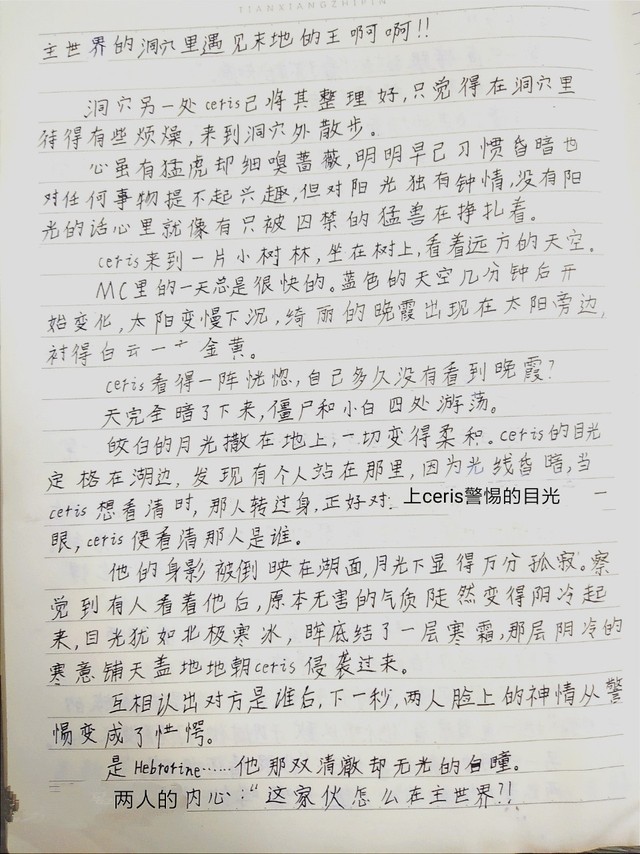 TIANXIANGZHIPIN
主世界的洞穴里遇见末地的王啊啊!!
洞穴另一处ceris已将其整理好,只觉得在洞穴里
待得有些烦燥,来到洞穴外散步。
心虽有猛虎却细嗅蔷薇,明明早已习惯昏暗也
对任何事物提不起兴趣,但对阳光独有钟情,没有阳
光的话心里就像有只被囚禁的猛兽在挣扎着。
ceris来到一片小树林,坐在树上,看着远方的天空。
MC里的一天总是很快的。蓝色的天空几分钟后开
始变化,太阳变慢下沉,绮丽的晚霞出现在太阳旁边,
衬得白云一片金黄。
ceris看得一阵恍惚,自己多久没有看到晚霞?
天完全暗了下来,僵尸和小白四处游荡。
皎白的月光撒在地上,一切变得柔积。ceris的目光
定格在湖边,发现有个人站在那里,因为光线昏暗,当
ceris想看清时,那人转过身,正好对上ceris警惕的目光 一
眼,ceris便看清那人是谁。
他的身影被倒映在湖面,月光下显得万分孤寂。察
觉到有人看着他后,原本无害的气质陡然变得阴冷起
来,目光犹如北极寒冰,眸底结了一层寒霜,那层阴冷的
寒意铺天盖地地朝ceris侵袭过来。
互相认出对方是谁后,下一秒,两人脸上的神情从警
惕变成了怔愕。
是Hebrorine……他那双清澈却无光的白瞳。
两人的内心:“这家伙怎么在主世界?!